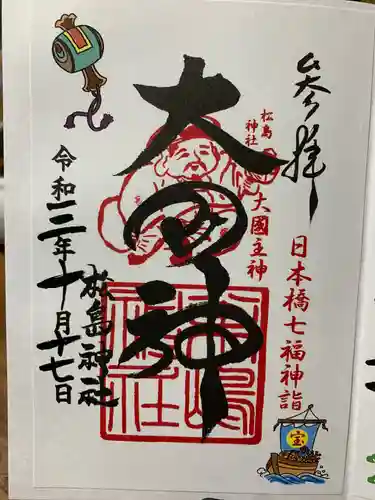 参拝
日本橋七福神詣
宝
松島
神社
大國主神
大国神
松島
神社
松島神社
令和三年十月十七日